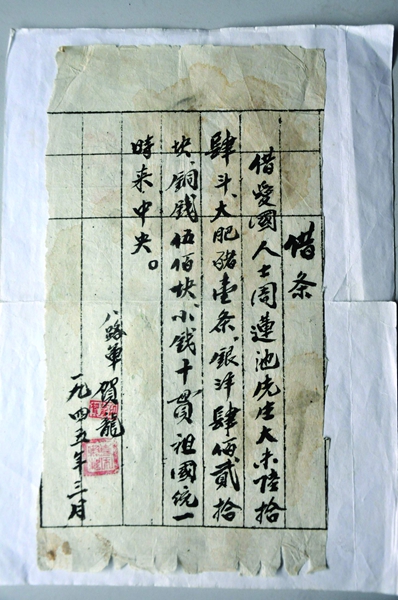 借条
借愛國人士周蓮池先生大米陸拾
肆斗、大肥豬壹条、銀洋肆佰貳拾
块、銅錢伍佰块、小錢十貫、祖國統一
時来中央。
八路軍 賀龍
一九四五年三月